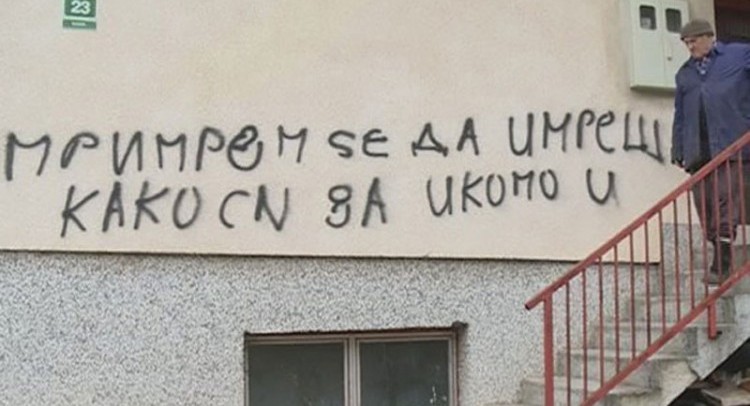 23
МРИМРЕМ ЅЕ ДА ИМРЕШ
КАКО СИ ЗА ИКОМО И